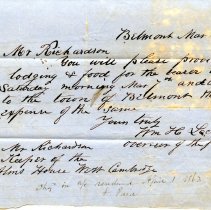 Belmont Mar
Mr Richardson
You will please prov
lodging & food for the bearer
Saturday morning Mar 7th and
to the town of Belmont th
expense of the same
Yours truly
Wm H. L
overseer of the
Mr Richardson
Keeper of the
Alms House West Cambridge
April 1863